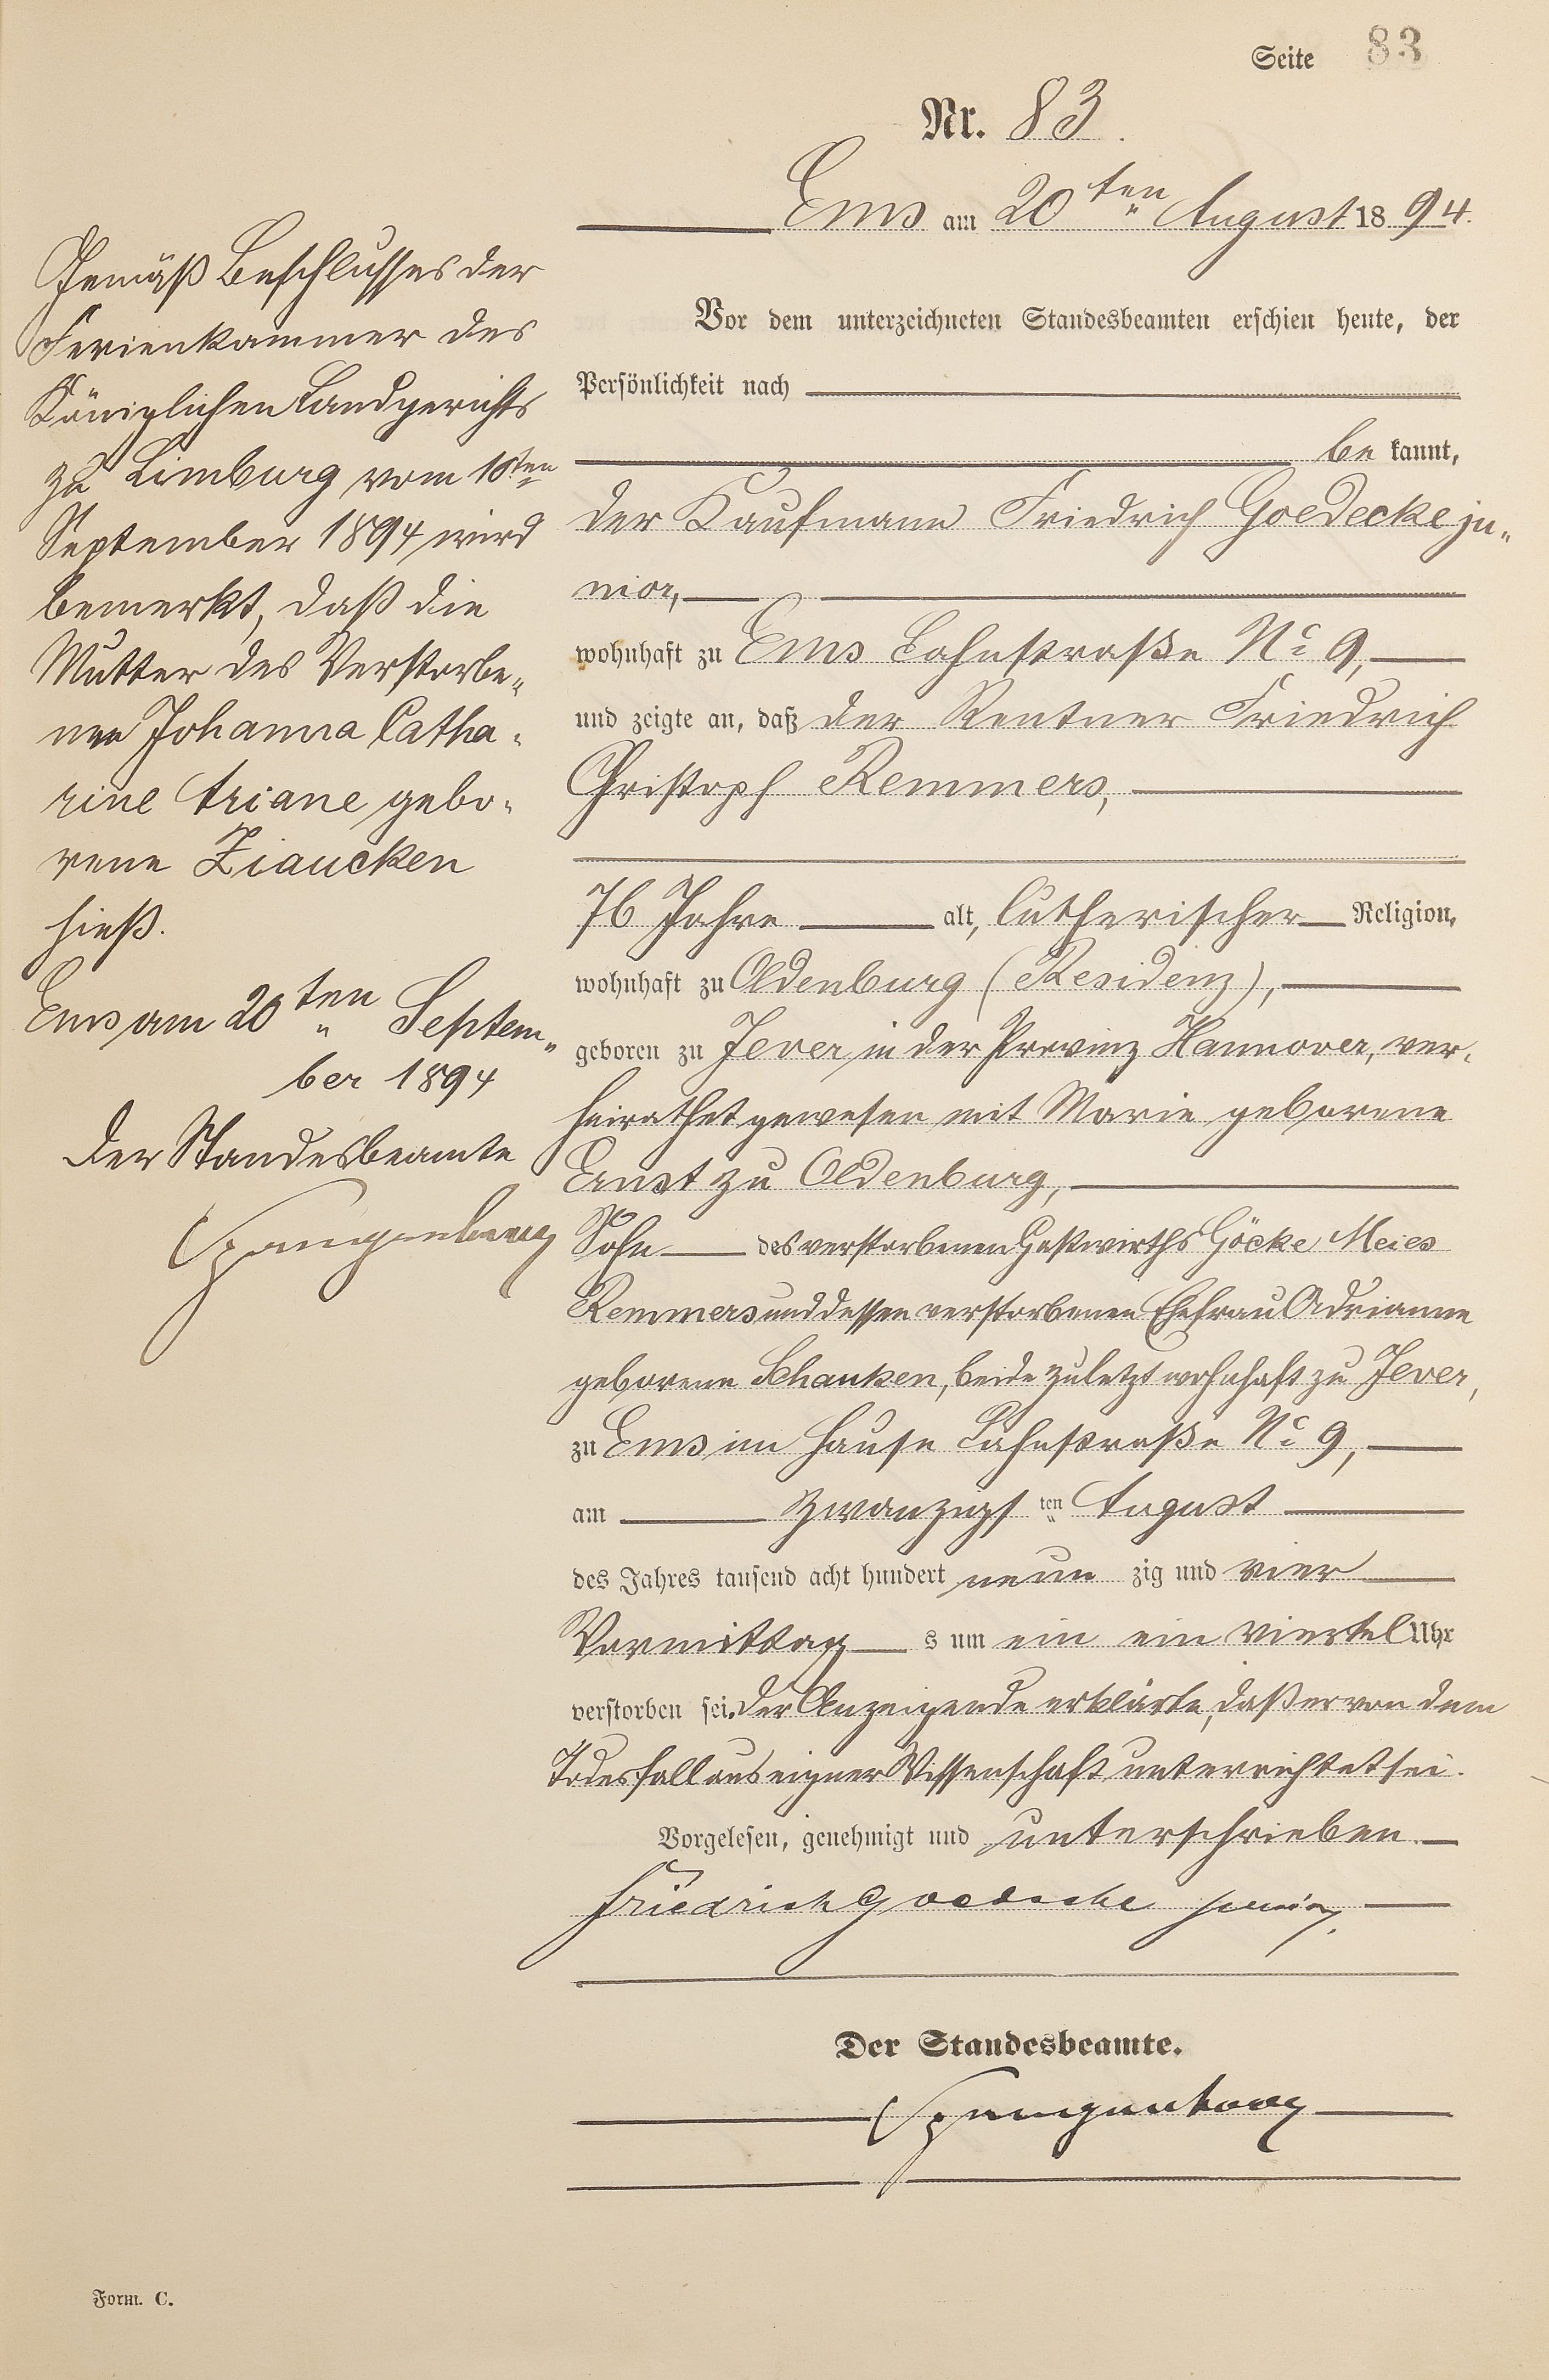 Seite 83
Nr. 83.
Ems am 20ten August 1894.
Vor dem unterzeichneten Standesbeamten erschien heute, der
Persönlichkeit nach
be kannt,
der Kaufmann Friedrich Goedecke ju-
nior,
wohnhaft zu Ems Lahnstraße No 9,
und zeigte an, daß der Rentner Friedrich
Christoph Remmers,
76 Jahre alt, lutherischer Religion,
wohnhaft zu Oldenburg (Residenz),
geboren zu Jever in der Provinz Hannover, ver-
heirathet gewesen mit Marie geborene
Ernst zu Oldenburg,
Sohn des verstorbenen Gastwirths Göcke Meies
Remmers und dessen verstorbenen Ehefrau Adrianne
geborene Schanken, beide zuletzt wohnhaft zu Jever,
zu Ems im Hause Lahnstraße No 9,
am zwanzigsten August
des Jahres tausend acht hundert neun zig und vier
Vormittags um ein ein viertel Uhr
verstorben sei. Der Anzeigende erklärte, daß er von dem
Todesfall aus eigner Wissenschaft unterrichtet sei.
Vorgelesen, genehmigt und unterschrieben.
Friedrich Goedecke junior.
Der Standesbeamte.
Spangenberg
Gemäß Beschlusses der
Ferienkammer des
Königlichen Landgerichts
zu Limburg vom 10ten
September 1894 wird
bemerkt, daß die
Mutter des Verstorbe-
nen Johanna Catha-
rine Ariane gebo-
rene Ziaucken
hieß.
Ems am 20ten Septem-
ber 1894
Der Standesbeamte
Spangenberg
Form. C.